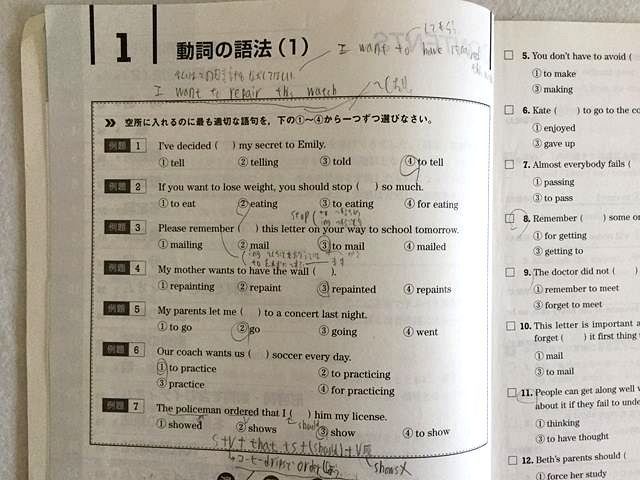 1 動詞の語法(1)
I want to have
I want to repair this watch
空所に入れるのに最も適切な語句を、下の①～④から一つずつ選びなさい。
例題 1 I've decided ( ) my secret to Emily.
① tell ② telling ③ told ④ to tell
例題 2 If you want to lose weight, you should stop ( ) so much.
① to eat ② eating ③ to eating ④ for eating
stop
例題 3 Please remember ( ) this letter on your way to school tomorrow.
① mailing ② mail ③ to mail ④ mailed
例題 4 My mother wants to have the wall ( ).
① repainting ② repaint ③ repainted ④ repaints
例題 5 My parents let me ( ) to a concert last night.
① to go ② go ③ going ④ went
例題 6 Our coach wants us ( ) soccer every day.
① to practice ② to practicing
③ practice ④ for practicing
例題 7 The policeman ordered that I ( ) him my license.
should
① showed ② shows ③ show ④ to show
S+V+ that +S+(should)+V原
shows X
5. You don't have to avoid (
① to make
③ making
6. Kate ( ) to go to the co
① enjoyed
③ gave up
7. Almost everybody fails (
① passing
③ to pass
8. Remember ( ) some or
① for getting
③ getting to
9. The doctor did not (
① remember to meet
③ forget to meet
10. This letter is important a
forget ( ) it first thing
① mail
③ to mail
11. People can get along well
about it if they fail to unde
① thinking
③ to have thought
12. Beth's parents should (
① force her study